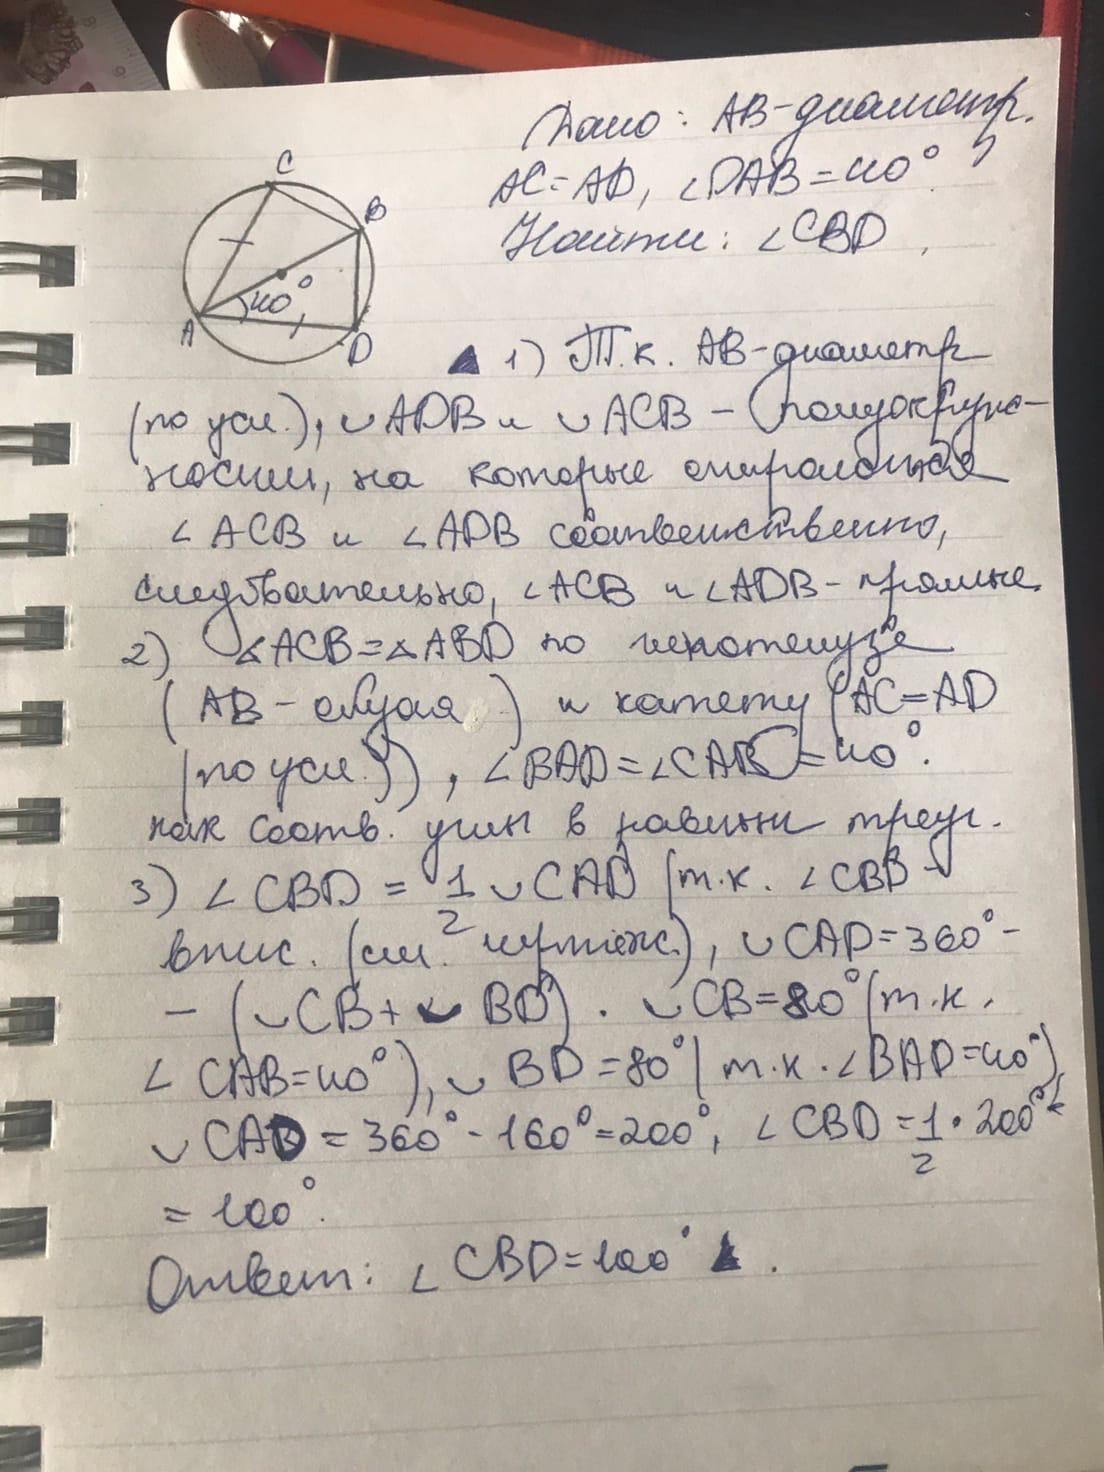 Дано: AB-диаметр.
AC=AD, ∠DAB=40°
Найти: ∠CBD
C
B
40°
A
D
1) Т.к. AB-диаметр
(по усл.), ◡ADB и ◡ACB - полуокруж-
ности, на которые опираются
∠ACB и ∠ADB соответственно,
следовательно, ∠ACB и ∠ADB - прямые.
2) △ACB=△ABD по гипотенузе
(AB-общая) и катету (AC=AD
(по усл.)), ∠BAD=∠CAB=40°.
как соотв. углы в равных треуг.
3) ∠CBD = 1/2 ◡CAD (т.к. ∠CBD -
впис. (см. чертёж), ◡CAD=360°-
- (◡CB+◡BD). ◡CB=80° (т.к.
∠CAB=40°), ◡BD=80° (т.к. ∠BAD=40°)
◡CAD=360°-160°=200°, ∠CBD=1/2·200°=
=100°.
Ответ: ∠CBD=100°.